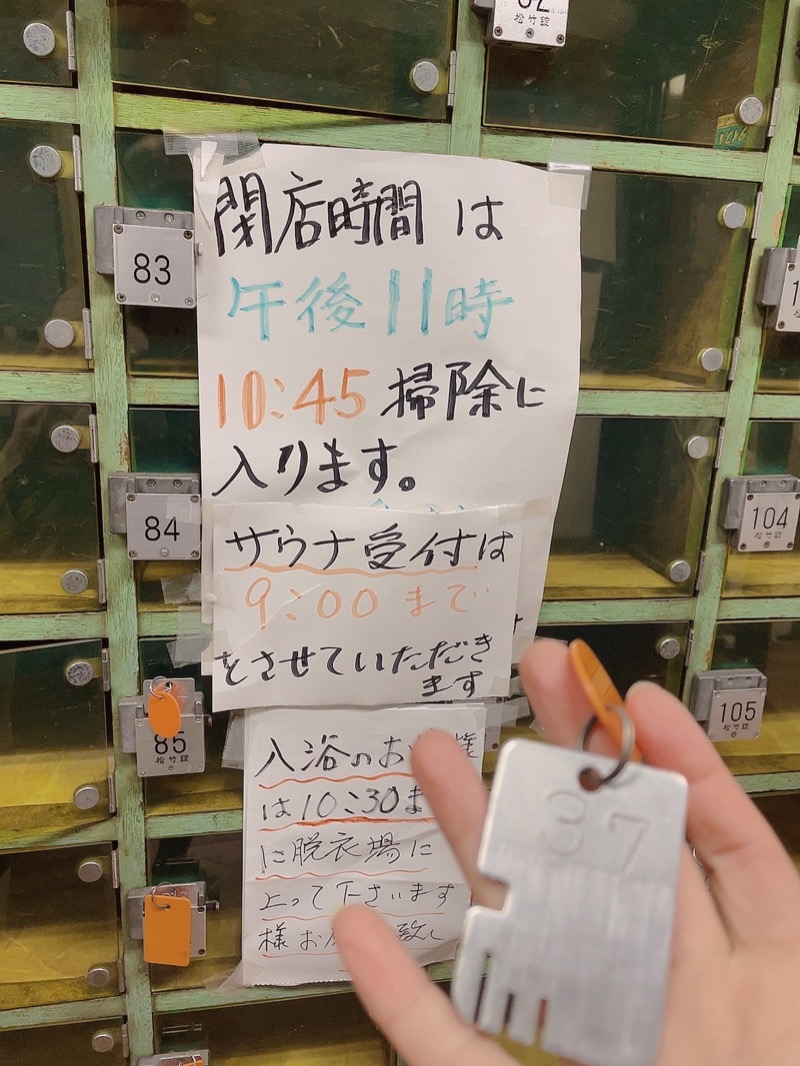 松竹錠
閉店時間は
午後11時
10:45 掃除に
入ります。
サウナ受付は
9:00 まで
をさせていただき
ます
入浴のお 様
は10:30ま
に脱衣場に
上って下さいます
様お 致し
83
84
85
松竹錠
104
松竹錠
105
松竹錠
37